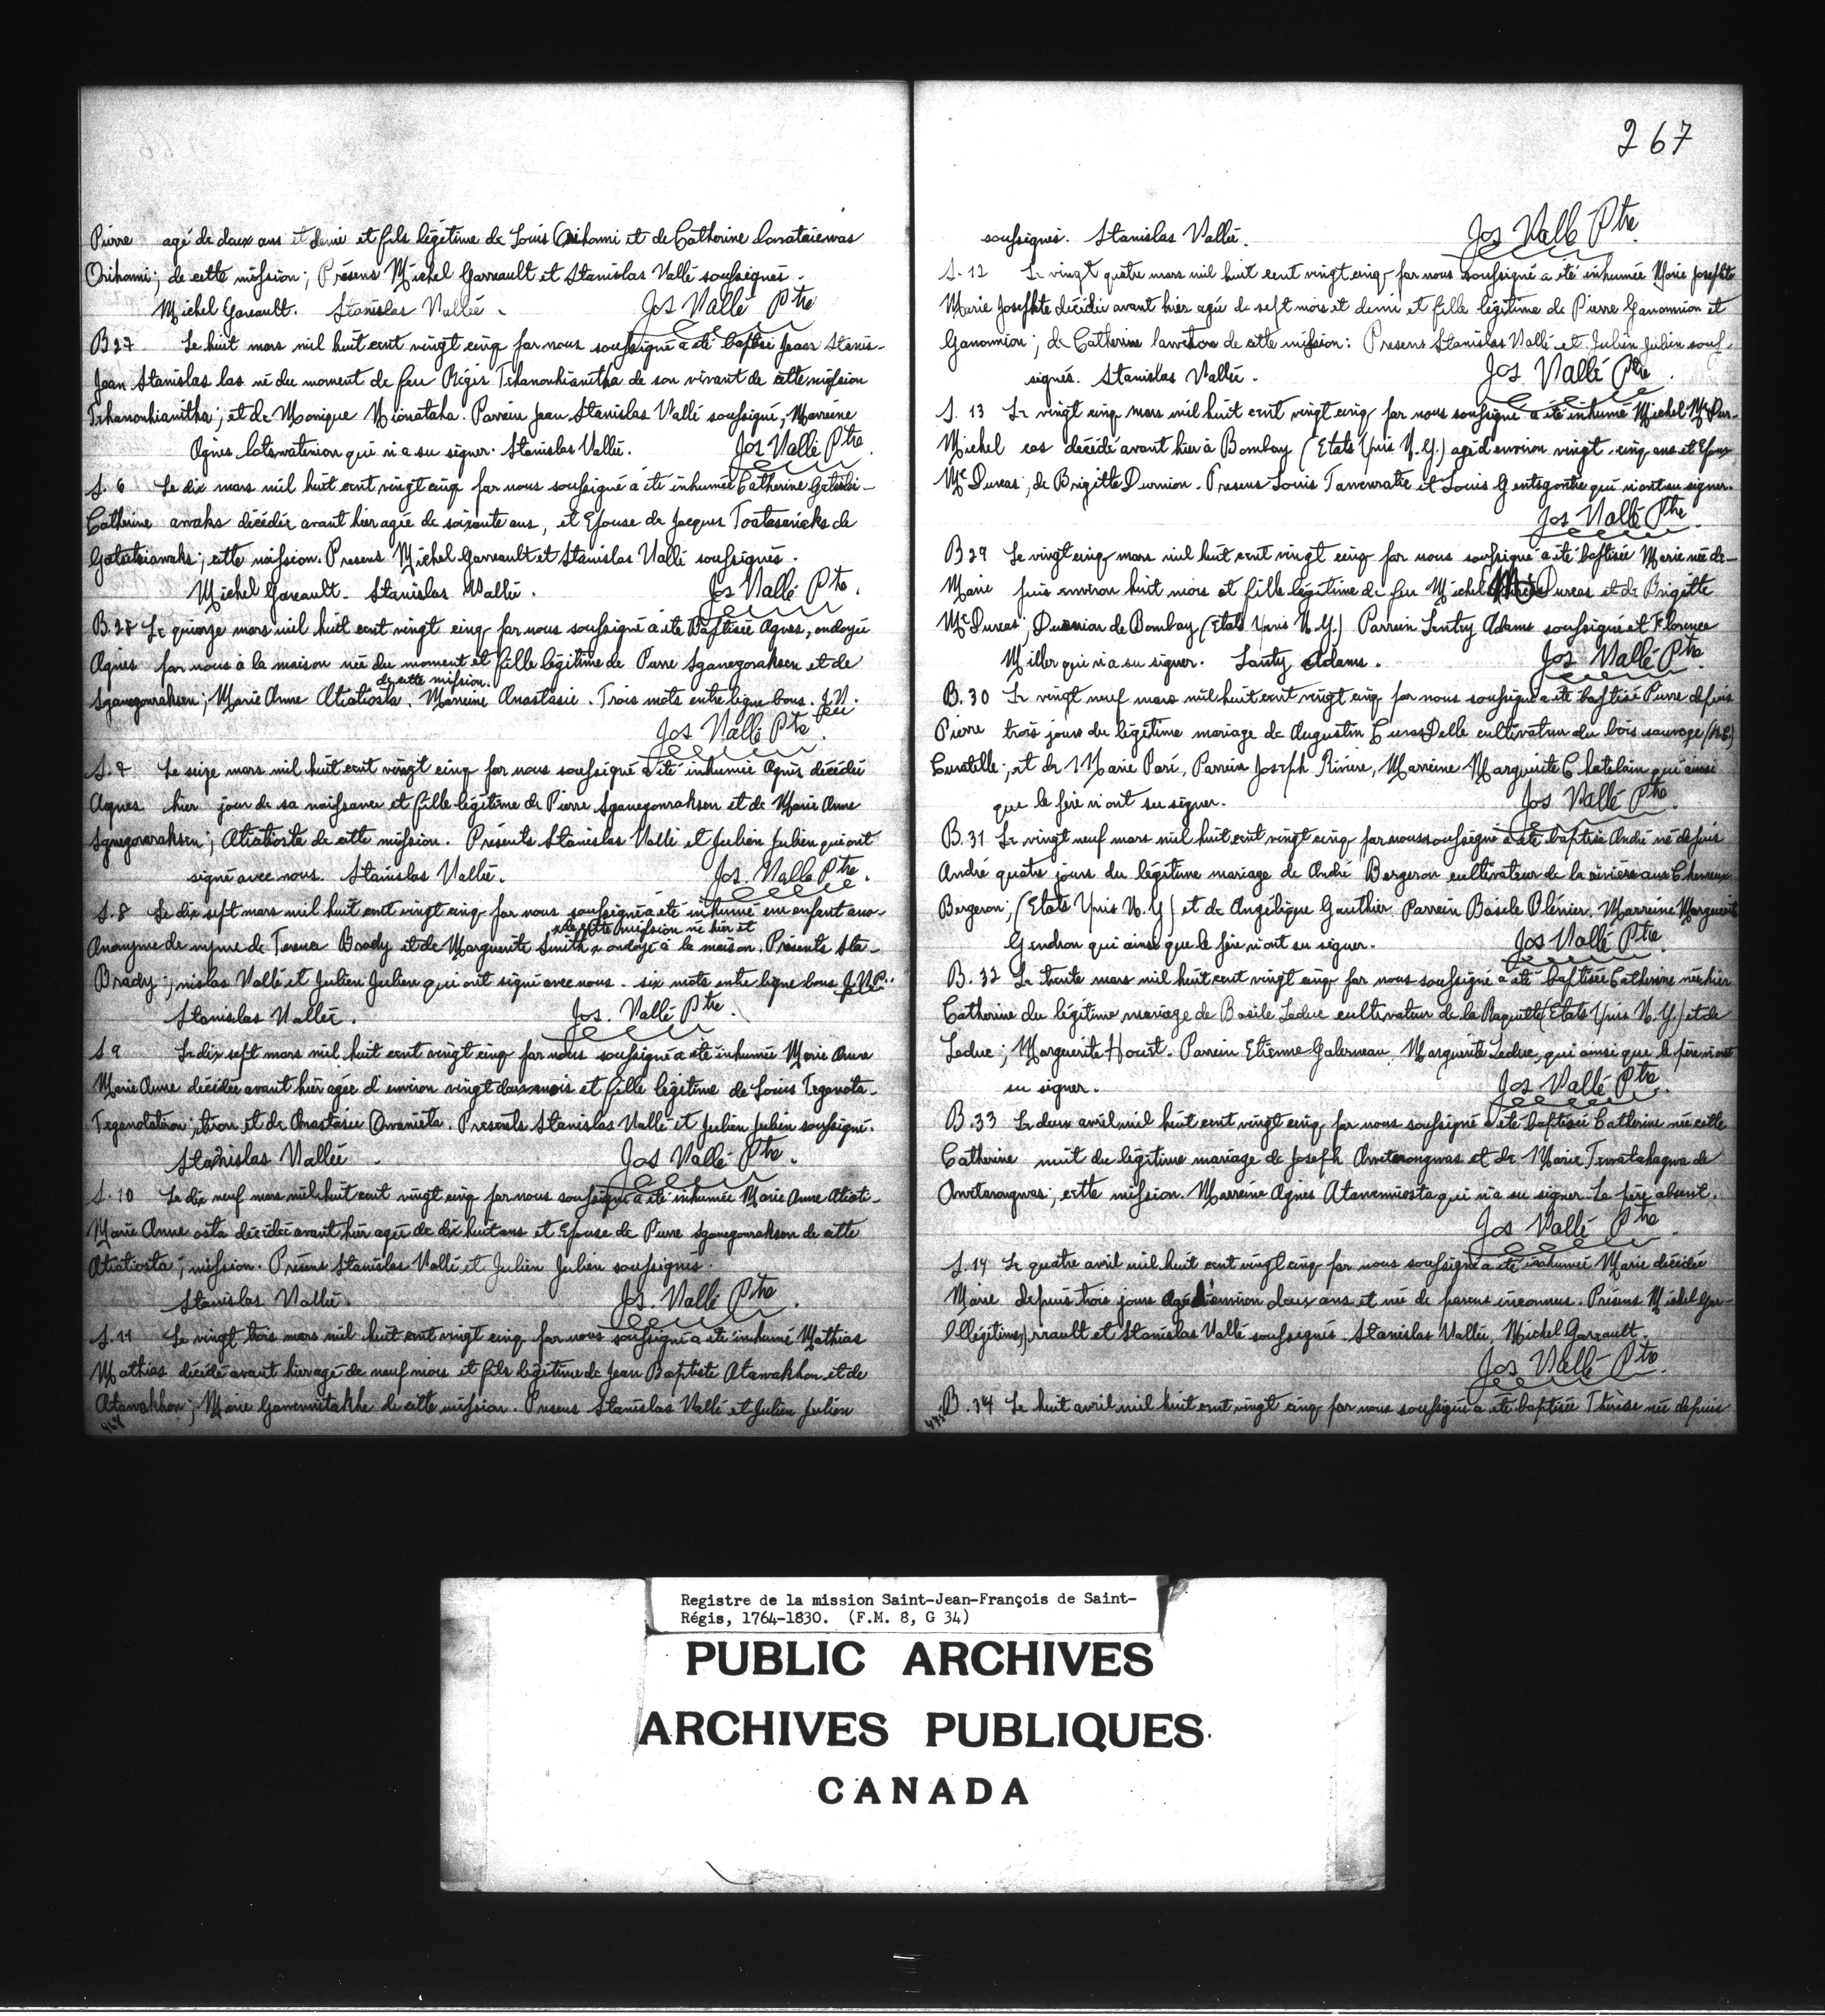 Pierre agé de deux ans et demi et fils légitime de Louis Orihomi et de Catherine
Orihomi; de cette mission; Présens Michel Garreault et Stanislas Vallé soussignés.
Michel Gareault. Stanislas Vallée. Jos Vallé Ptre
B 27 Le huit mars mil huit cent vingt cinq par nous soussigné a été baptisé Jean Stanis-
Jean Stanislas las né du moment de feu Régis Tehanonhianitha de son vivant de cette mission
Tehanonhianitha; et de Monique Nionataha. Parrein Jean Stanislas Vallé soussigné; Marreine
Agnès qui n'a su signer. Stanislas Vallée. Jos Vallé Ptre.
S. 6 Le dix mars mil huit cent vingt cinq par nous soussigné a été inhumée Catherine Gatsitsi-
Catherine awaks décédée avant hier agée de soixante ans, et Epouse de Jacques de
Gatsitsiawaks; cette mission. Presens Michel Garreault et Stanislas Vallé soussignés.
Michel Gareault. Stanislas Vallée. Jos Vallé Ptre.
B. 28 Le quinze mars mil huit cent vingt cinq par nous soussigné a été Baptisée Agnes, ondoyée
Agnès par nous à la maison née du moment et fille légitime de Pierre Sganegonraksen et de
de cette mission.
Sganegonraksen; Marie Anne Atiatiosta. Marreine Anastasie. Trois mots entre ligne bons. J.V.
Jos Vallé Ptre.
S. 7 Le seize mars mil huit cent vingt cinq par nous soussigné a été inhumée Agnès décédée
Agnes hier jour de sa naissance et fille légitime de Pierre Sganegonraksen et de Marie Anne
Sganegonraksen; Atiatiosta de cette mission. Présents Stanislas Vallé et Julien Julien qui ont
signé avec nous. Stanislas Vallée. Jos. Vallé Ptre.
S. 8 Le dix sept mars mil huit cent vingt cinq par nous soussigné a été inhumé un enfant ano-
x de cette mission né hier et
Anonyme de nyme de Brady et de Marguerite Smith x ondoyé à la maison. Présents Sta-
Brady; nislas Vallé et Julien Julien qui ont signé avec nous. six mots entre ligne bons J.V.P.
Stanislas Vallée. Jos. Vallé Ptre.
S 9 Le dix sept mars mil huit cent vingt cinq par nous soussigné a été inhumée Marie Anne
Marie Anne décédée avant hier agée d'environ vingt deux mois et fille légitime de Louis Teganota-
Teganotatiron; tiron et de Anastasie Owanieta. Presents Stanislas Vallé et Julien Julien soussigné.
Stanislas Vallée. Jos Vallé Ptre.
S. 10 Le dix neuf mars mil huit cent vingt cinq par nous soussigné a été inhumée Marie Anne Atiati-
Marie Anne osta décédée avant hier agée de dix huit ans et Epouse de Pierre Sganegonraksen de cette
Atiatiosta; mission. Présens Stanislas Vallé et Julien Julien soussignés.
Stanislas Vallée. Jos. Vallé Ptre.
S. 11 Le vingt trois mars mil huit cent vingt cinq par nous soussigné a été inhumé Mathias
Mathias décédé avant hier agé de neuf mois et fils légitime de Jean Baptiste Atawakhon et de
Atawakhon; Marie de cette mission. Presens Stanislas Vallé et Julien Julien
267
soussignés. Stanislas Vallée. Jos Vallé Ptre.
S. 12 Le vingt quatre mars mil huit cent vingt cinq par nous soussigné a été inhumée Marie Josephte
Marie Josephte décédée avant hier agée de sept mois et demi et fille légitime de Pierre Ganonnion et
Ganonnion; de Catherine de cette mission: Presens Stanislas Vallé et Julien Julien sous-
signés. Stanislas Vallée. Jos Vallé Ptre.
S. 13 Le vingt cinq mars mil huit cent vingt cinq par nous soussigné a été inhumé Michel Mc Dur-
Michel eas décédé avant hier à Bombay (Etats Unis N.Y.) agé d'environ vingt-cinq ans et Epoux
Mc Dureas; de Brigitte Durnion. Presens Louis et Louis qui n'ont su signer.
Jos Vallé Ptre.
B 29 Le vingt cinq mars mil huit cent vingt cinq par nous soussigné a été baptisée Marie née de-
Marie puis environ huit mois et fille légitime de feu Michel Dureas et de Brigitte
Mc Dureas; Durnion de Bombay (Etats Unis N.Y.) Parrein Adams soussigné et Florence
Miller qui n'a su signer. Adams. Jos Vallé Ptre.
B. 30 Le vingt neuf mars mil huit cent vingt cinq par nous soussigné a été baptisé Pierre depuis
Pierre trois jours du légitime mariage de Augustin cultivateur du bois sauvage
Curatelle; et de Marie Paré, Parrein Joseph Rivière, Marreine Marguerite Chatelain qui ainsi
que le père n'ont su signer. Jos Vallé Ptre.
B. 31 Le vingt neuf mars mil huit cent vingt cinq par nous soussigné a été baptisé André né depuis
André quatre jours du légitime mariage de André Bergeron cultivateur de la rivière aux
Bergeron; (Etats Unis N.Y) et de Angélique Gauthier Parrein Basile Plénier, Marreine Marguerite
Gendron qui ainsi que le père n'ont su signer. Jos Vallé Ptre.
B. 32 Le trente mars mil huit cent vingt cinq par nous soussigné a été baptisée Catherine née hier
Catherine du légitime mariage de Basile Leduc cultivateur de la Raquette (Etats Unis N.Y.) et de
Leduc; Marguerite. Parrein Etienne Galerneau, Marguerite Leduc, qui ainsi que le père n'ont
su signer. Jos Vallé Ptre.
B. 33 Le deux avril mil huit cent vingt cinq par nous soussigné a été baptisée Catherine née cette
Catherine nuit du légitime mariage de Joseph et de Marie de
cette mission. Marreine Agnès qui n'a su signer. Le père absent.
Jos Vallé Ptre.
S. 14 Le quatre avril mil huit cent vingt cinq par nous soussigné a été inhumée Marie décédée
Marie depuis trois jours agée d'environ deux ans et née de parens inconnus. Présens Michel Gar-
Illégitime; reault et Stanislas Vallé soussignés. Stanislas Vallée, Michel Garreault.
Jos Vallé Ptre.
B. 34 Le huit avril mil huit cent vingt cinq par nous soussigné a été baptisée Thérèse née depuis
Registre de la mission Saint-Jean-François de Saint-
Régis, 1764-1830. (F.M. 8, G 34)
PUBLIC ARCHIVES
ARCHIVES PUBLIQUES
CANADA